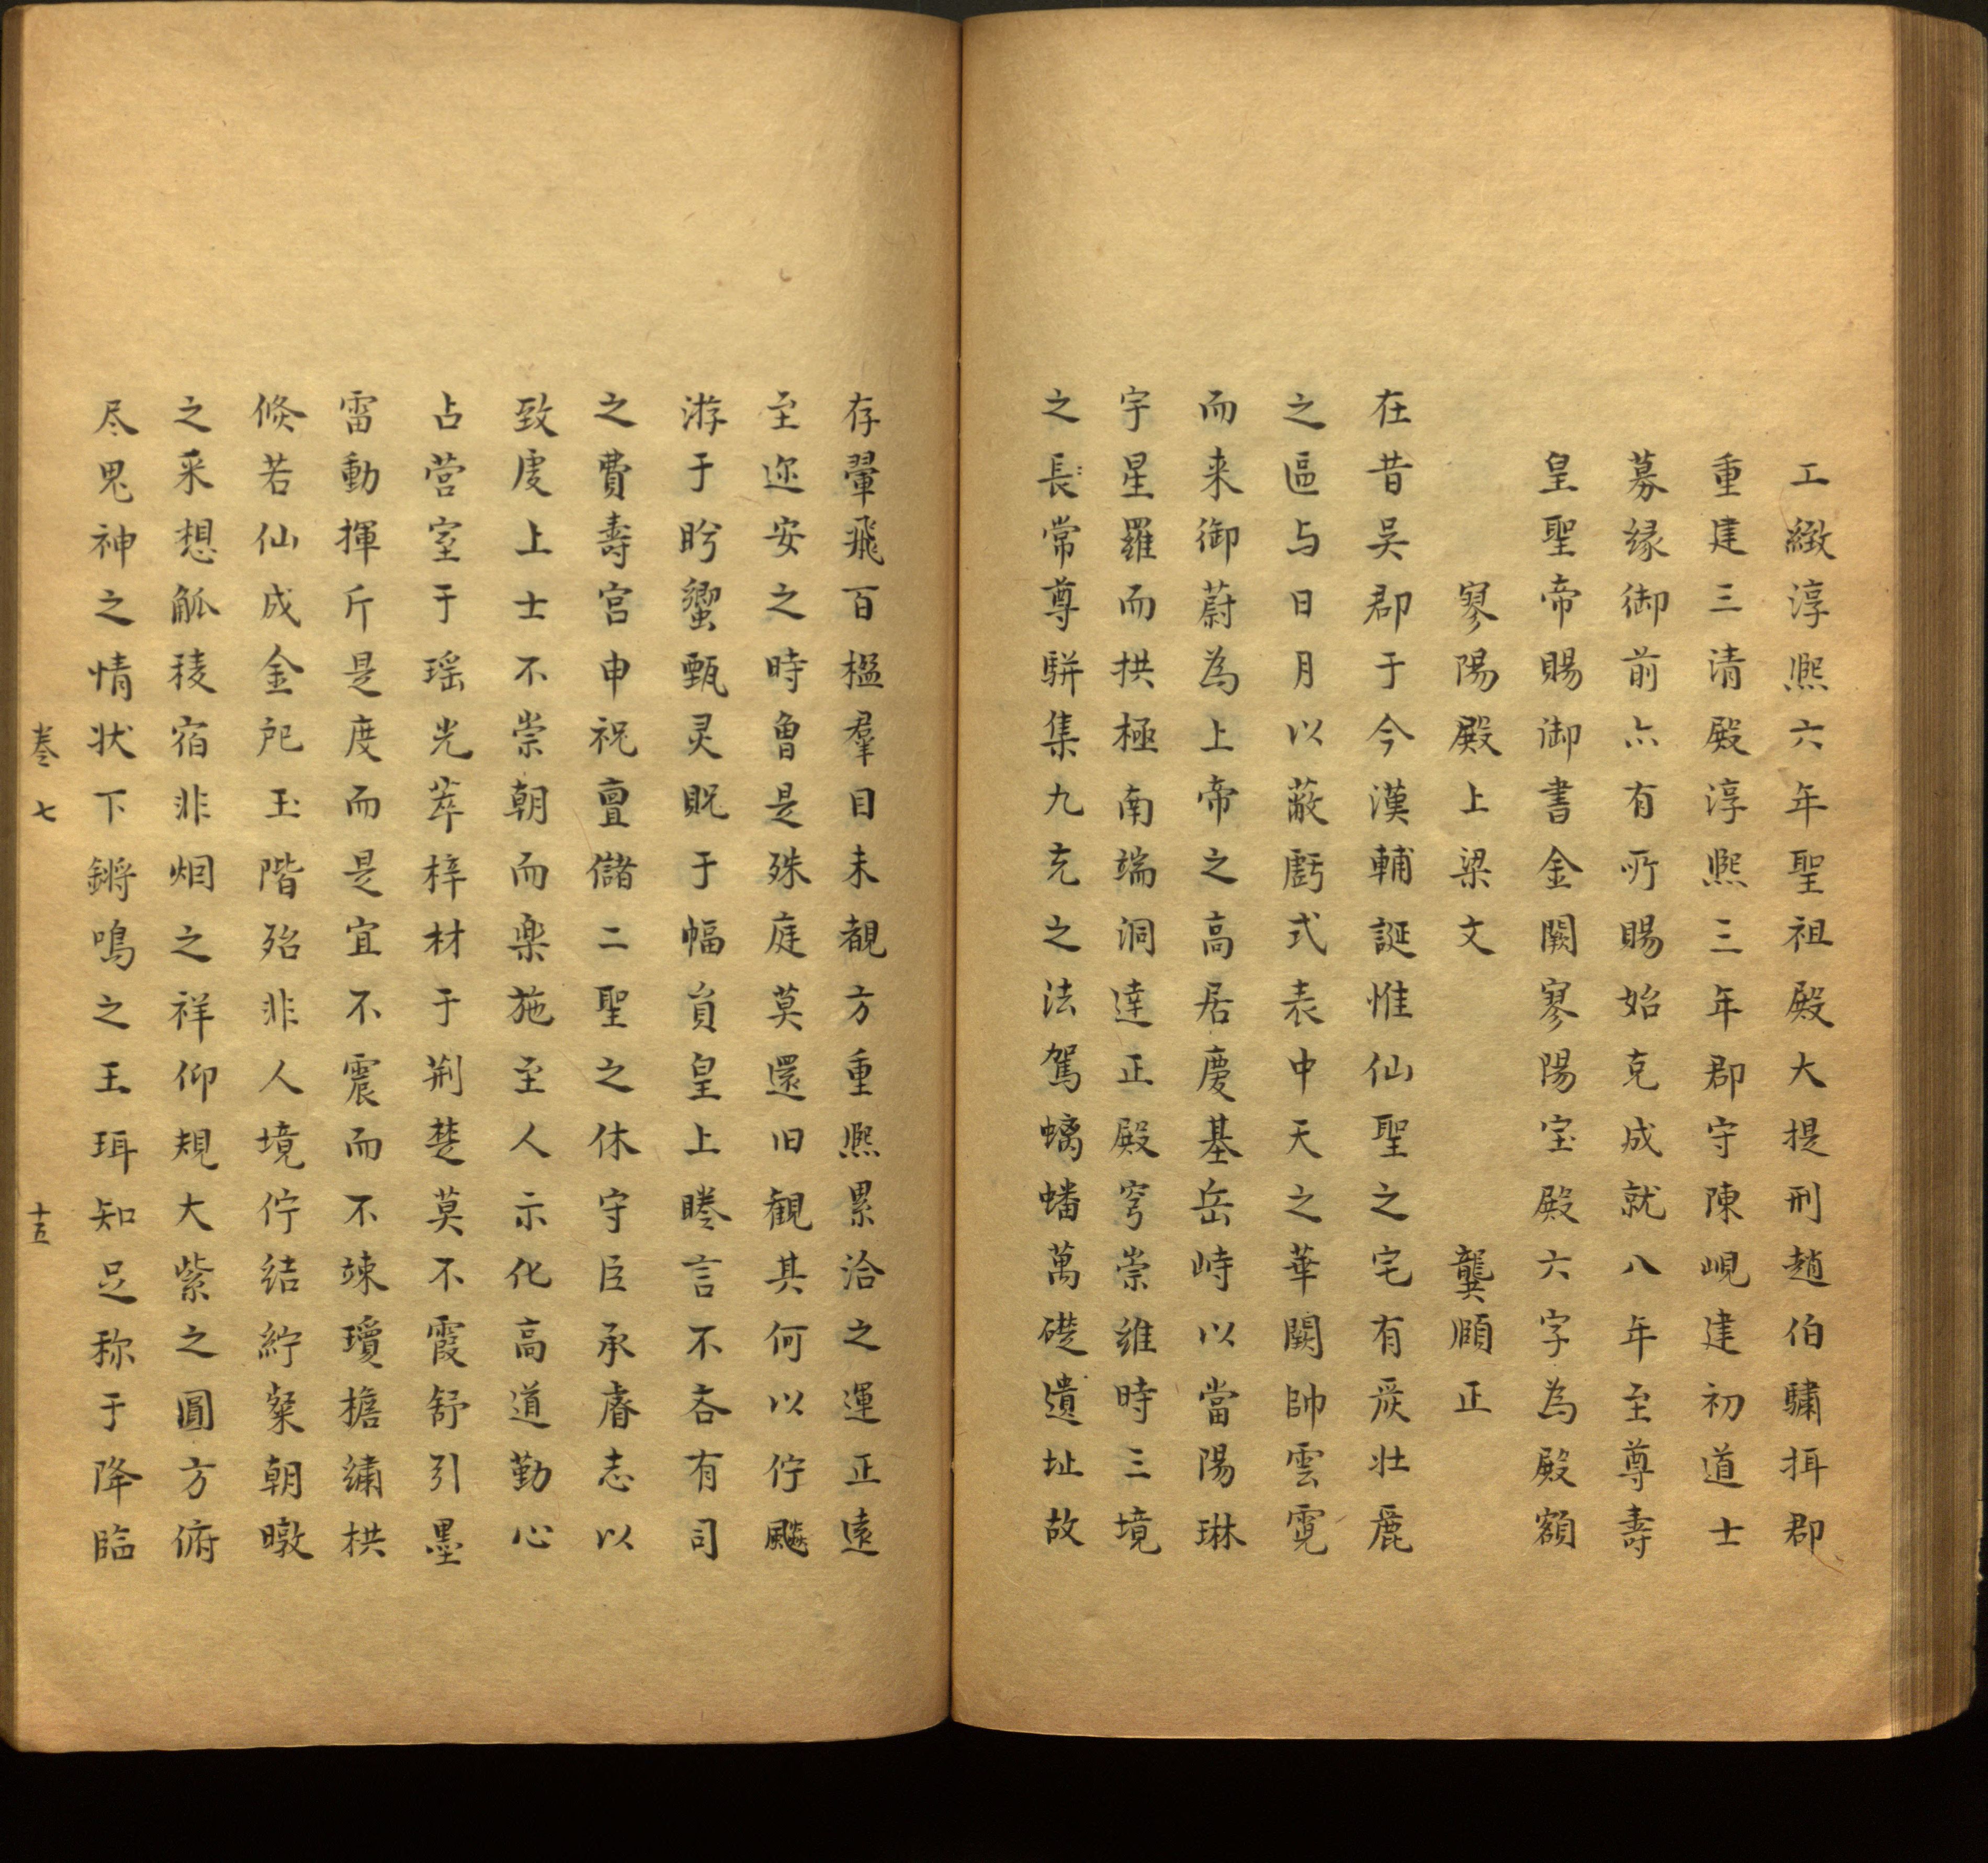 工緻淳熙六年聖祖殿大提刑趙伯驌揖郡
重建三清殿淳熙三年郡守陳峴建初道士
募縁御前亦有所賜始克成就八年至尊壽
皇聖帝賜御書金闕寥陽宝殿六字為殿額
寥陽殿上梁文　龔頤正
在昔吴郡于今漢輔誕惟仙聖之宅有厥壮麗
之區与日月以蔽虧式表中天之華闕帥雲霓
而来御蔚為上帝之高居慶基岳峙以當陽琳
宇星羅而拱極南端洞達正殿穹崇維時三境
之長常尊駢集九充之法駕螭蟠萬礎遺址故
存翬飛百楹羣目未覩方重熙累洽之運正遠
至迩安之時曾是殊庭莫還旧観其何以佇飈
游于肹蠁甄灵貺于幅員皇上睠言不吝有司
之費壽宫申祝亶儲二聖之休守臣承睿志以
致䖍上士不崇朝而楽施至人示化高道勤心
占营室于瑶光萃梓材于荆楚莫不霞舒引墨
雷動揮斤是度而是宜不震而不竦瓊擔繡栱
倐若仙成金戺玉階殆非人境佇結紵粲朝暾
之釆想觚稜宿非烟之祥仰規大紫之圓方俯
尽鬼神之情状下鏘鳴之玉珥知足称于降臨
卷七　十五